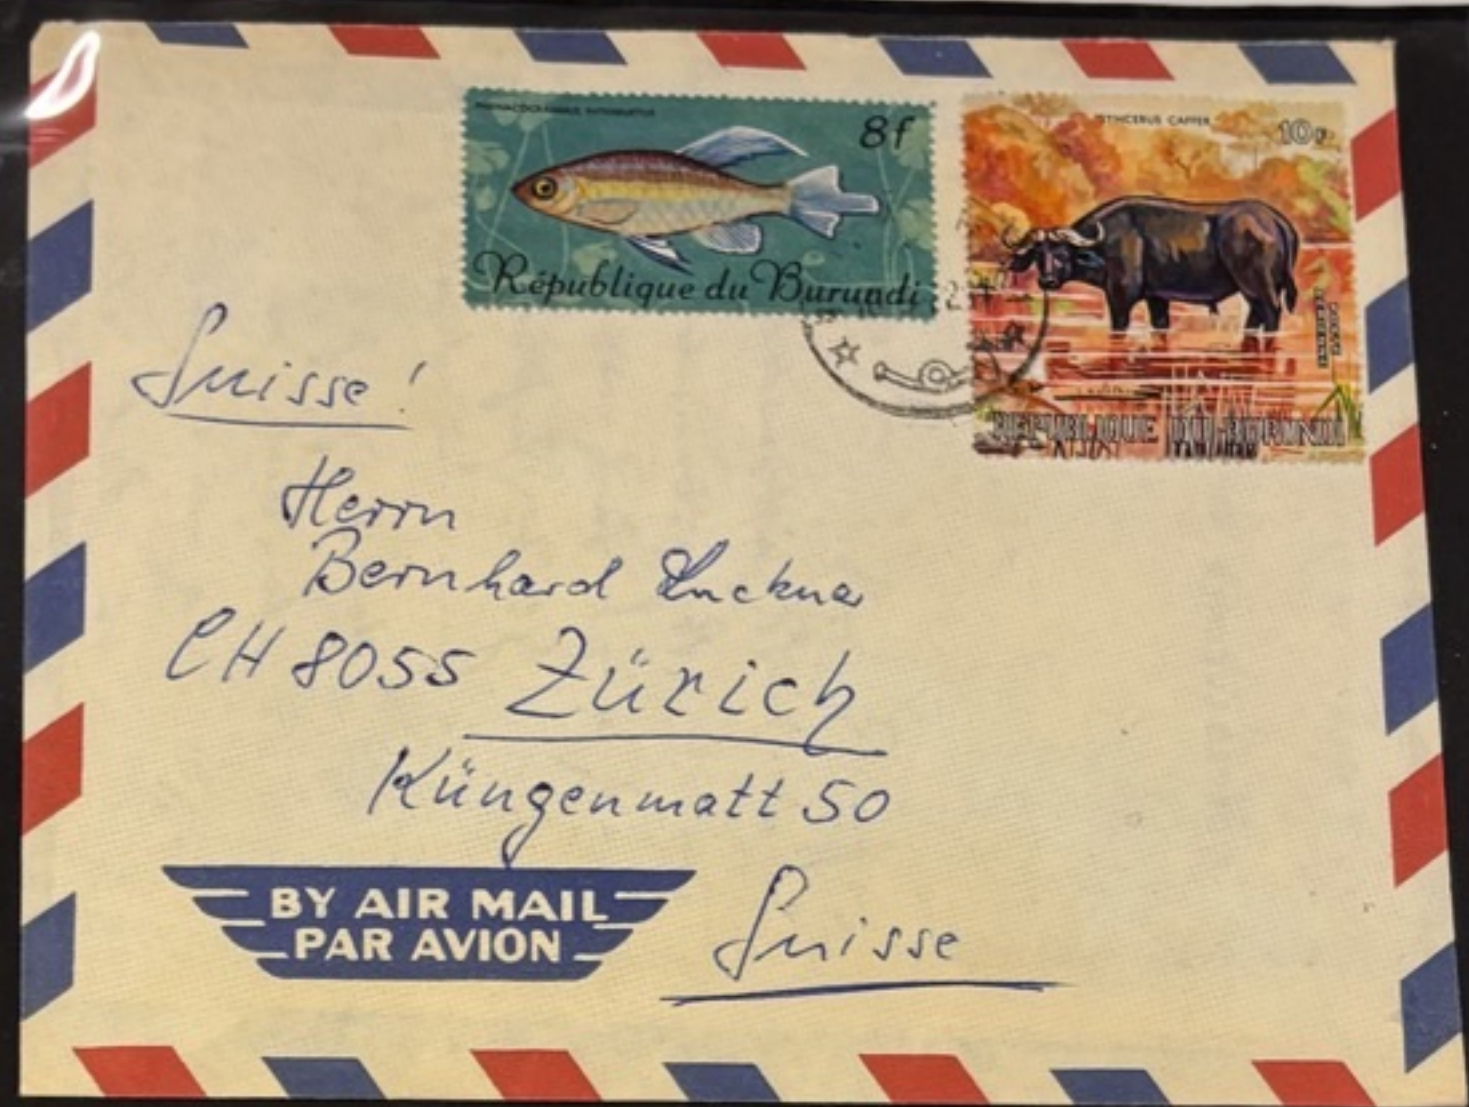 8f
République du Burundi
SYNCERUS CAFFER
10F
POSTE AERIENNE
REPUBLIQUE DU BURUNDI
Suisse!
Herrn
Bernhard
CH 8055 Zürich
Küngenmatt 50
BY AIR MAIL
PAR AVION
Suisse